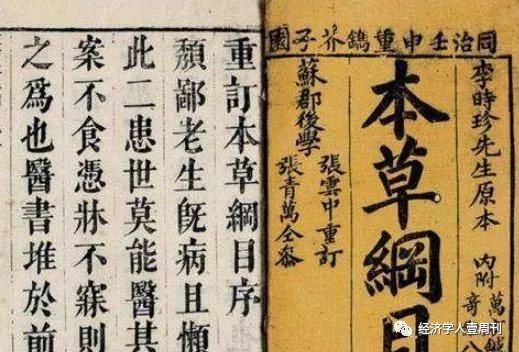 同治壬申重鐫芥子園
李時珍先生原本
内附
萬
奇
本草綱目
蘇郡後學
張雲中重訂
張青萬仝參
重訂本草綱目序
頹鄙老生旣病且懶
此二患世莫能醫其
案不食憑牀不寐則
之爲也醫書堆於前
经济学人壹周刊